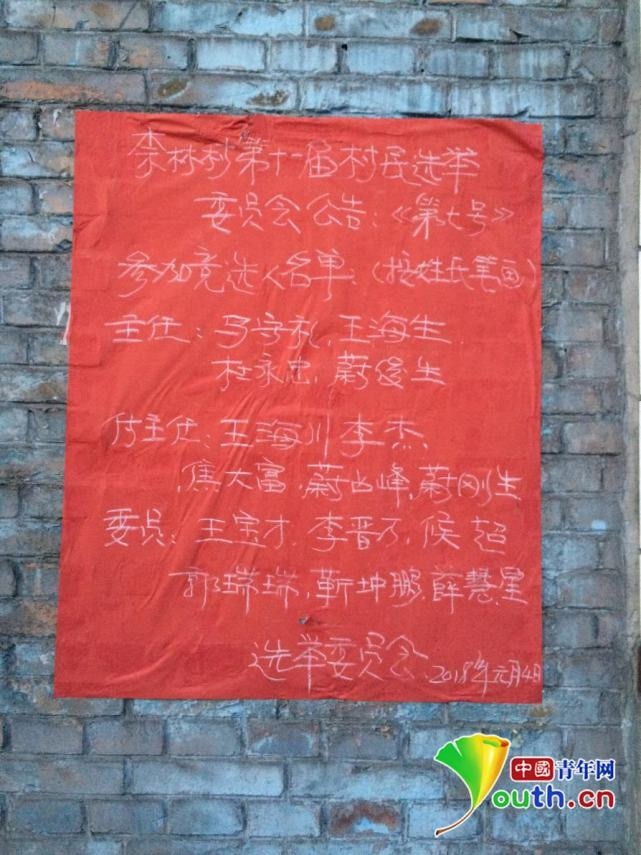 林村第十一届村民选举
委员会公告：《第七号》
参加竞选人名单：(按姓氏笔画)
主任：马守礼，王海生
杜永忠，蔚俊生
付主任：王海川李杰、
焦大富，蔚占峰，蔚刚生
委员：王宝才，李晋万，候超
郭瑞瑞，靳坤鹏，薛慧星
选举委员会 2018年元月4日
中國青年网
Youth.cn